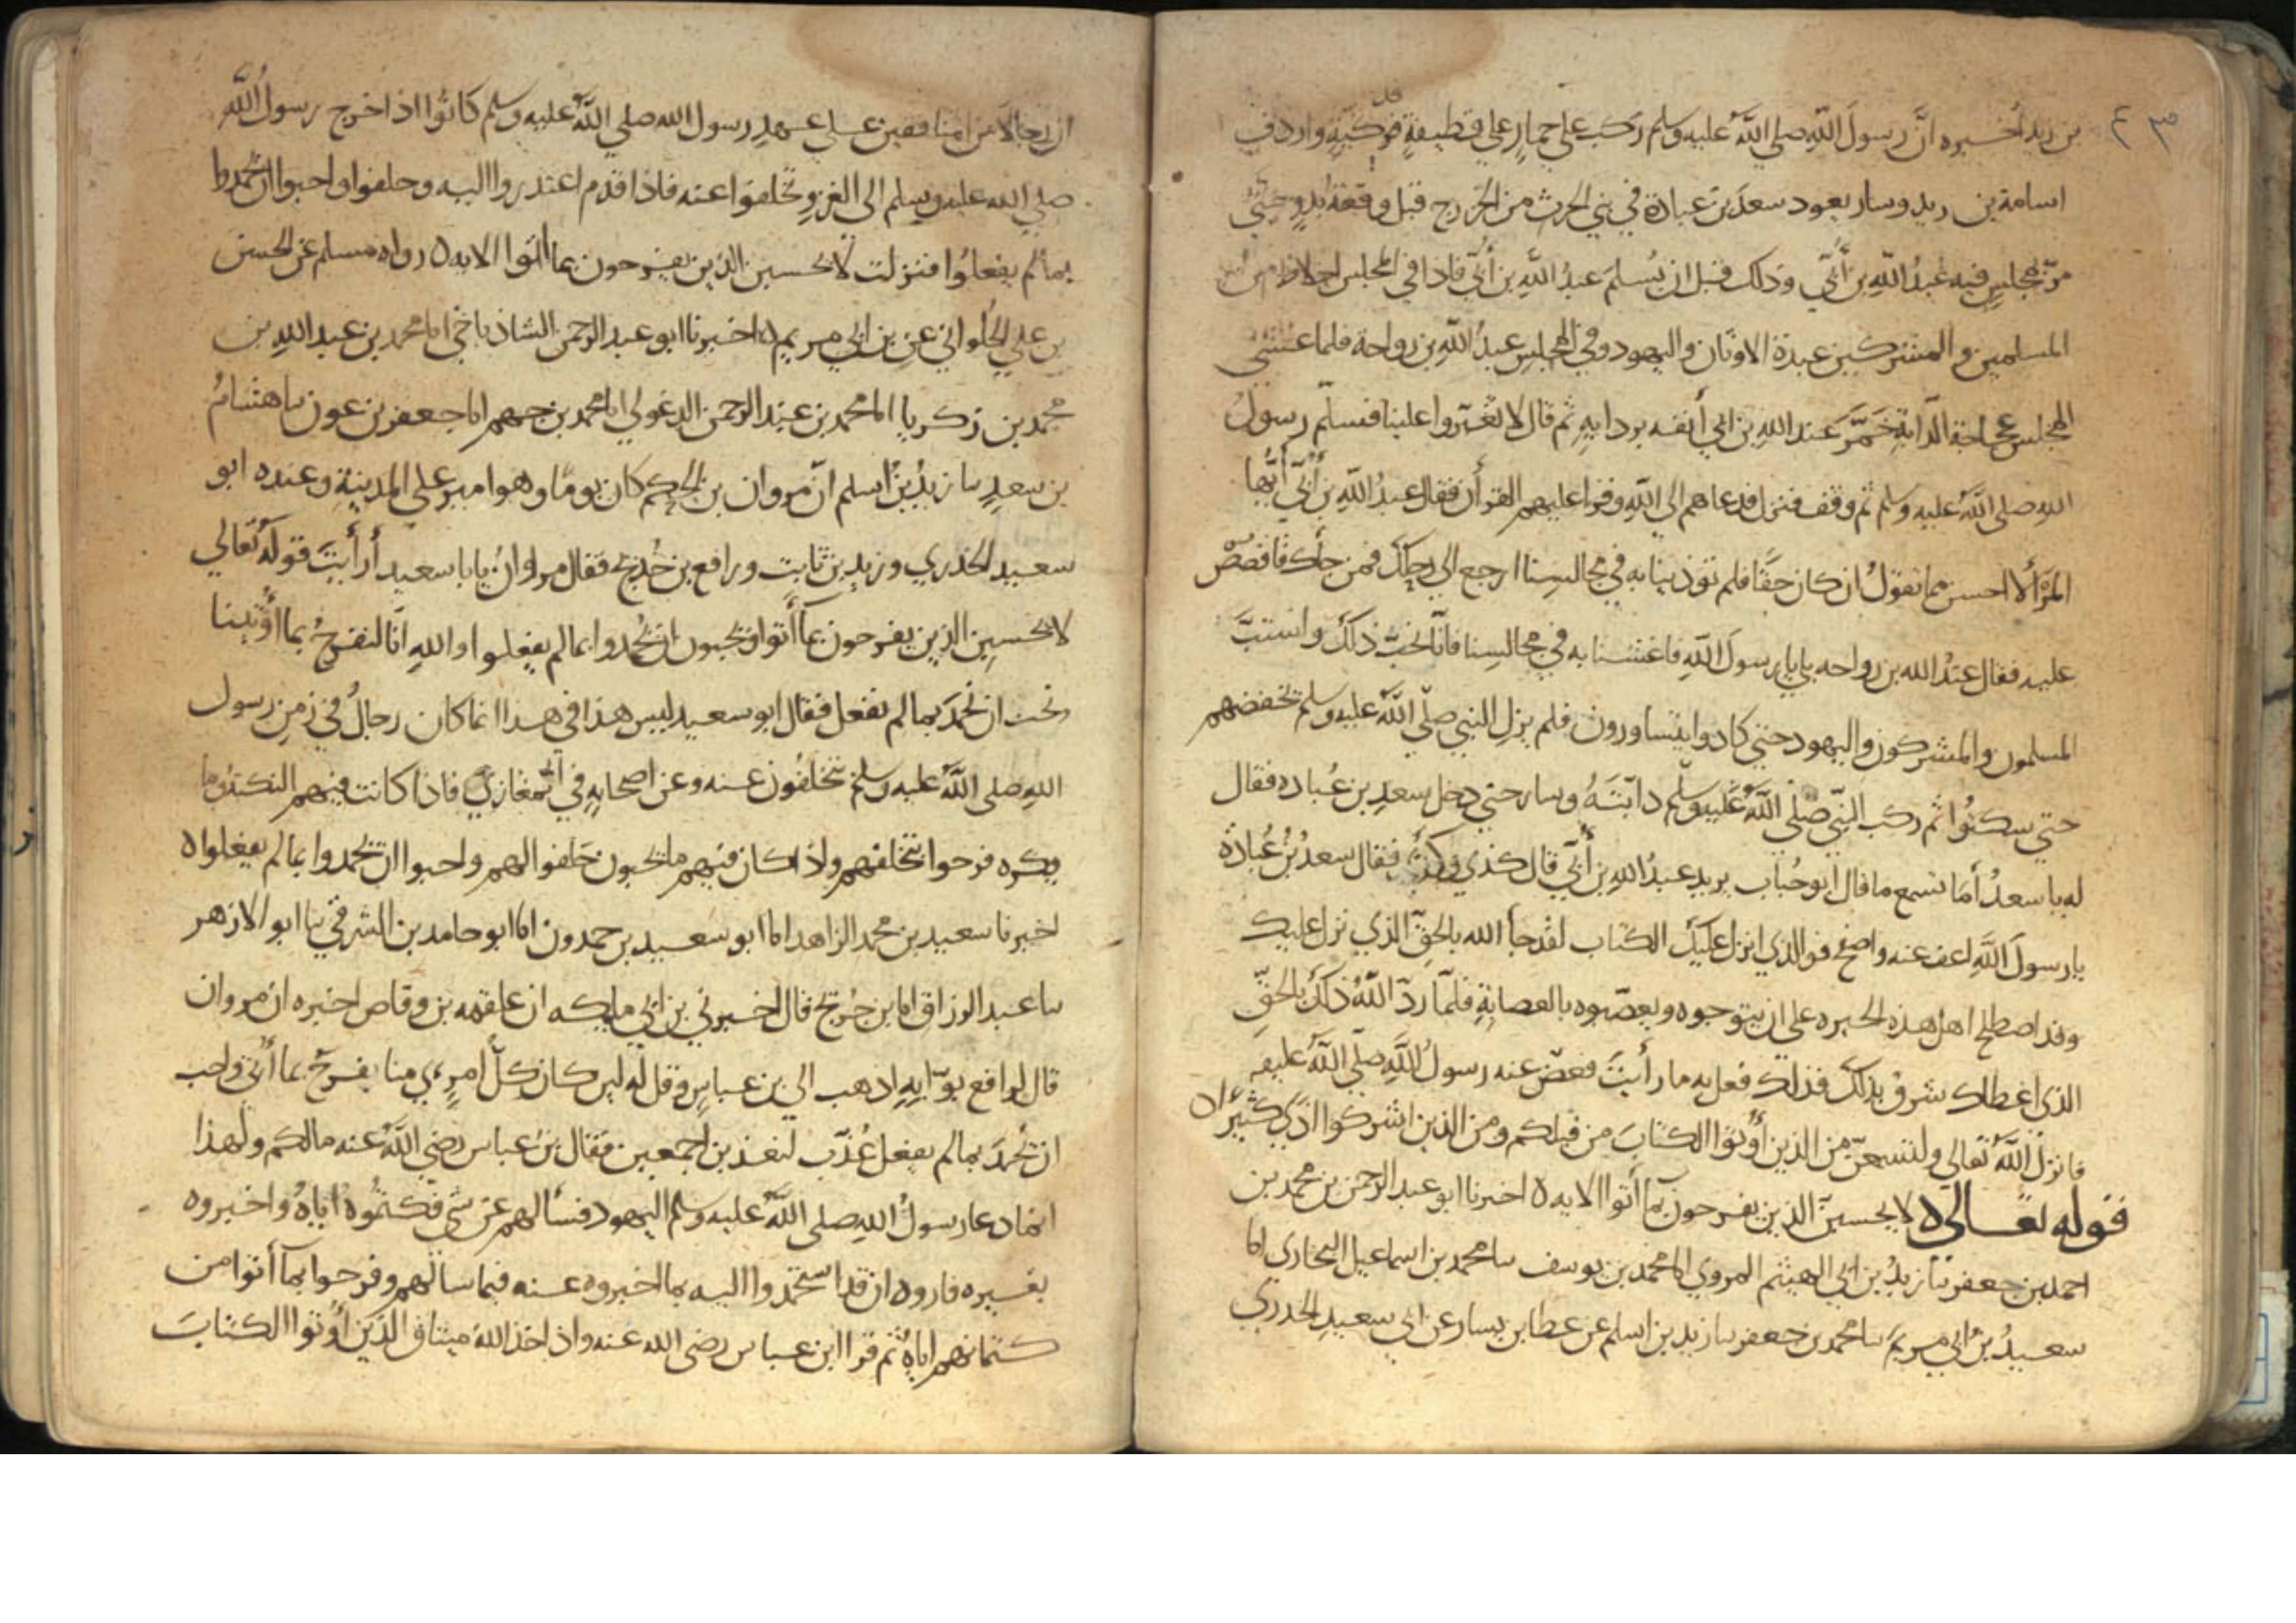 ٤٣
بن زيد أخبره انّ رسول الله صلى الله عليه وسلم ركب على حمار على قطيفةٍ فدكيّةٍ واردف
اسامة بن زيد وسار يعود سعد بن عبادة في بني الحرث من الخزرج قبل وقعة بدر حتى
مرّ بمجلسٍ فيه عبدُ اللهِ بن أُبيّ وذلك قبل ان يُسلمَ عبدُ اللهِ بن أُبيّ فاذا في المجلس اخلاط من
المسلمين والمشركين عبدة الاوثان واليهود وفي المجلس عبدُ الله بن رواحة فلما غشيَ
المجلس عجاجة الدّابةِ خمّرَ عبد الله بن ابي أنفه بردايهِ ثم قال لا تُغبّروا علينا فسلّم رسولُ
اللهِ صلى الله عليه وسلم ثم وقف فنزل فدعاهم الى الله وقرا عليهم القرأن فقال عبدُ اللهِ بن أُبيّ أيُّها
المرُْ ألا احسن مما تقولُ ان كان حقًا فلم تؤذينا به في مجالسنا ارجع الى رحلك فمن جاك فاقصُصْ
عليه فقال عبدُ الله بن رواحه بلى يا رسول اللهِ فاغشنا به في مجالسنا فانّا نُحبّ ذلك واستبّ
المسلمون والمشركون واليهود حتى كادوا يتساورون فلم يزلِ النبي صلّى الله عليه وسلم يخفضهم
حتى سكنُوا ثم ركب النبّي صلى الله عليه وسلم دابّتَهُ وسار حتى دخل سعدِ بن عُباده فقال
له يا سعدُ أما تسمع ما قال ابو حُباب يريد عبدُ الله بن أُبيّ قال كذي وكذى فقال سعدُ بنُ عُبادة
يا رسولَ اللهِ اعف عنه واصفح فو الذي انزل عليك الكتاب لقد جأ الله بالحقّ الذي نزل عليك
وقد اصطلح اهل هذه البحيره على ان يتوجوه ويعصّبوه بالعصابةِ فلمّا ردّ اللهُ ذلك بالحقّ
الذي اعطاك شرق بذلك فذلك فعل به ما رأيتَ فعفى عنه رسولُ اللهِ صلّى الله عليه
فانزل اللهُ تعالى ولتسمعنّ من الذين أُوتوا الكتابَ من قبلكم ومن الذين اشركوا اذًى كثيرًا ٥
قوله تعالى ٥ لا يحسبنّ الذين يفرحون بما أتوا الايه ٥ اخبرنا ابو عبد الرحمن بن محمد بن
احمد بن جعفر نا زيدُ بن ابي الهيثم المروي انا محمد بن يوسف نا محمد بن اسماعيل البخاري انا
سعيدُ بن ابي مريمَ نا محمد بن جعفر نا زيد بن اسلم عن عطا بن يسار عن ابي سعيدٍ الخدري
ان رجالا من المنافقين على عهدِ رسول الله صلى الله عليه وسلم كانُوا اذا خرج رسولُ الله
صلى الله عليه وسلم الى الغزوِ تخلّفوا عنه فاذا قدم اعتذروا اليه وحلفوا واحبوا ان يحمدوا
بما لم يفعلُوا فنزلت لا تحسبن الذين يفرحون بما اتوا الايه ٥ رواه مسلم عن الحسن
بن علي الحُلواني عن بن ابي مريم ٥ اخبرنا ابو عبد الرحمن الشاذياخي انا محمد بن عبد الله بن
محمد بن زكريا انا محمد بن عبد الرحمن الدغولي انا محمد بن جهم انا جعفر بن عون نا هشامُ
بن سعدٍ نا زيدُ بنُ اسلم انّ مروان بن الحكم كان يومًا وهو امير على المدينةِ وعنده ابو
سعيد الخدري وزيد بن ثابتٍ ورافع بن خُديج فقال مروانُ يابا سعيد أرأيتَ قولَه تعالى
لا تحسبن الذين يفرحون بمآ أتوا ويحبون ان يُحمدوا بما لم يفعلوا والله انّا لنفرحُ بما أُوتينا
ونحب ان نُحمدَ بما لم نفعل فقال ابو سعيد ليس هذا في هذا انما كان رجالٌ في زمنِ رسول
اللهِ صلى الله عليه وسلم يتخلفون عنه وعن اصحابهِ في المغازي فاذا كانت فيهم النكبةُ وما
يكره فرحوا بتخلفهم واذا كان فيهم ما يحبون حلفوا لهم واحبوا ان يحمدوا بما لم يفعلوا ٥
اخبرنا سعيد بن محمد الزاهد انا ابو سعيد بن حمدون انا ابو حامد بن الشرقي نا ابو الازهر
نا عبد الرزاق انا بن جُريج قال اخبرني بن ابي مليكه ان علقمه بن وقاص اخبره ان مروان
قال لرافع بوّابهِ اذهب الى بن عباسٍ وقل له لين كان كلّ امرٍءي منا يفرحُ بما أُتى واحب
ان يُحمدَ بما لم يفعل عُذّب لنعذبن اجمعين فقال بنُ عباس رضى اللهُ عنه مالكم ولهذا
انما دعا رسولُ اللهِ صلى الله عليه وسلم اليهود فسألهم عن شى فكتمُوهُ اياهُ واخبروه
بغيره فاروه ان قد استحمدوا اليه بما اخبروه عنه فيما سالهم وفرحوا بمآ أتوا من
كتمانهم اياهُ ثم قرا ابن عباس رضى الله عنه واذ اخذ اللهُ ميثاق الذين أُوتوا الكتابَ